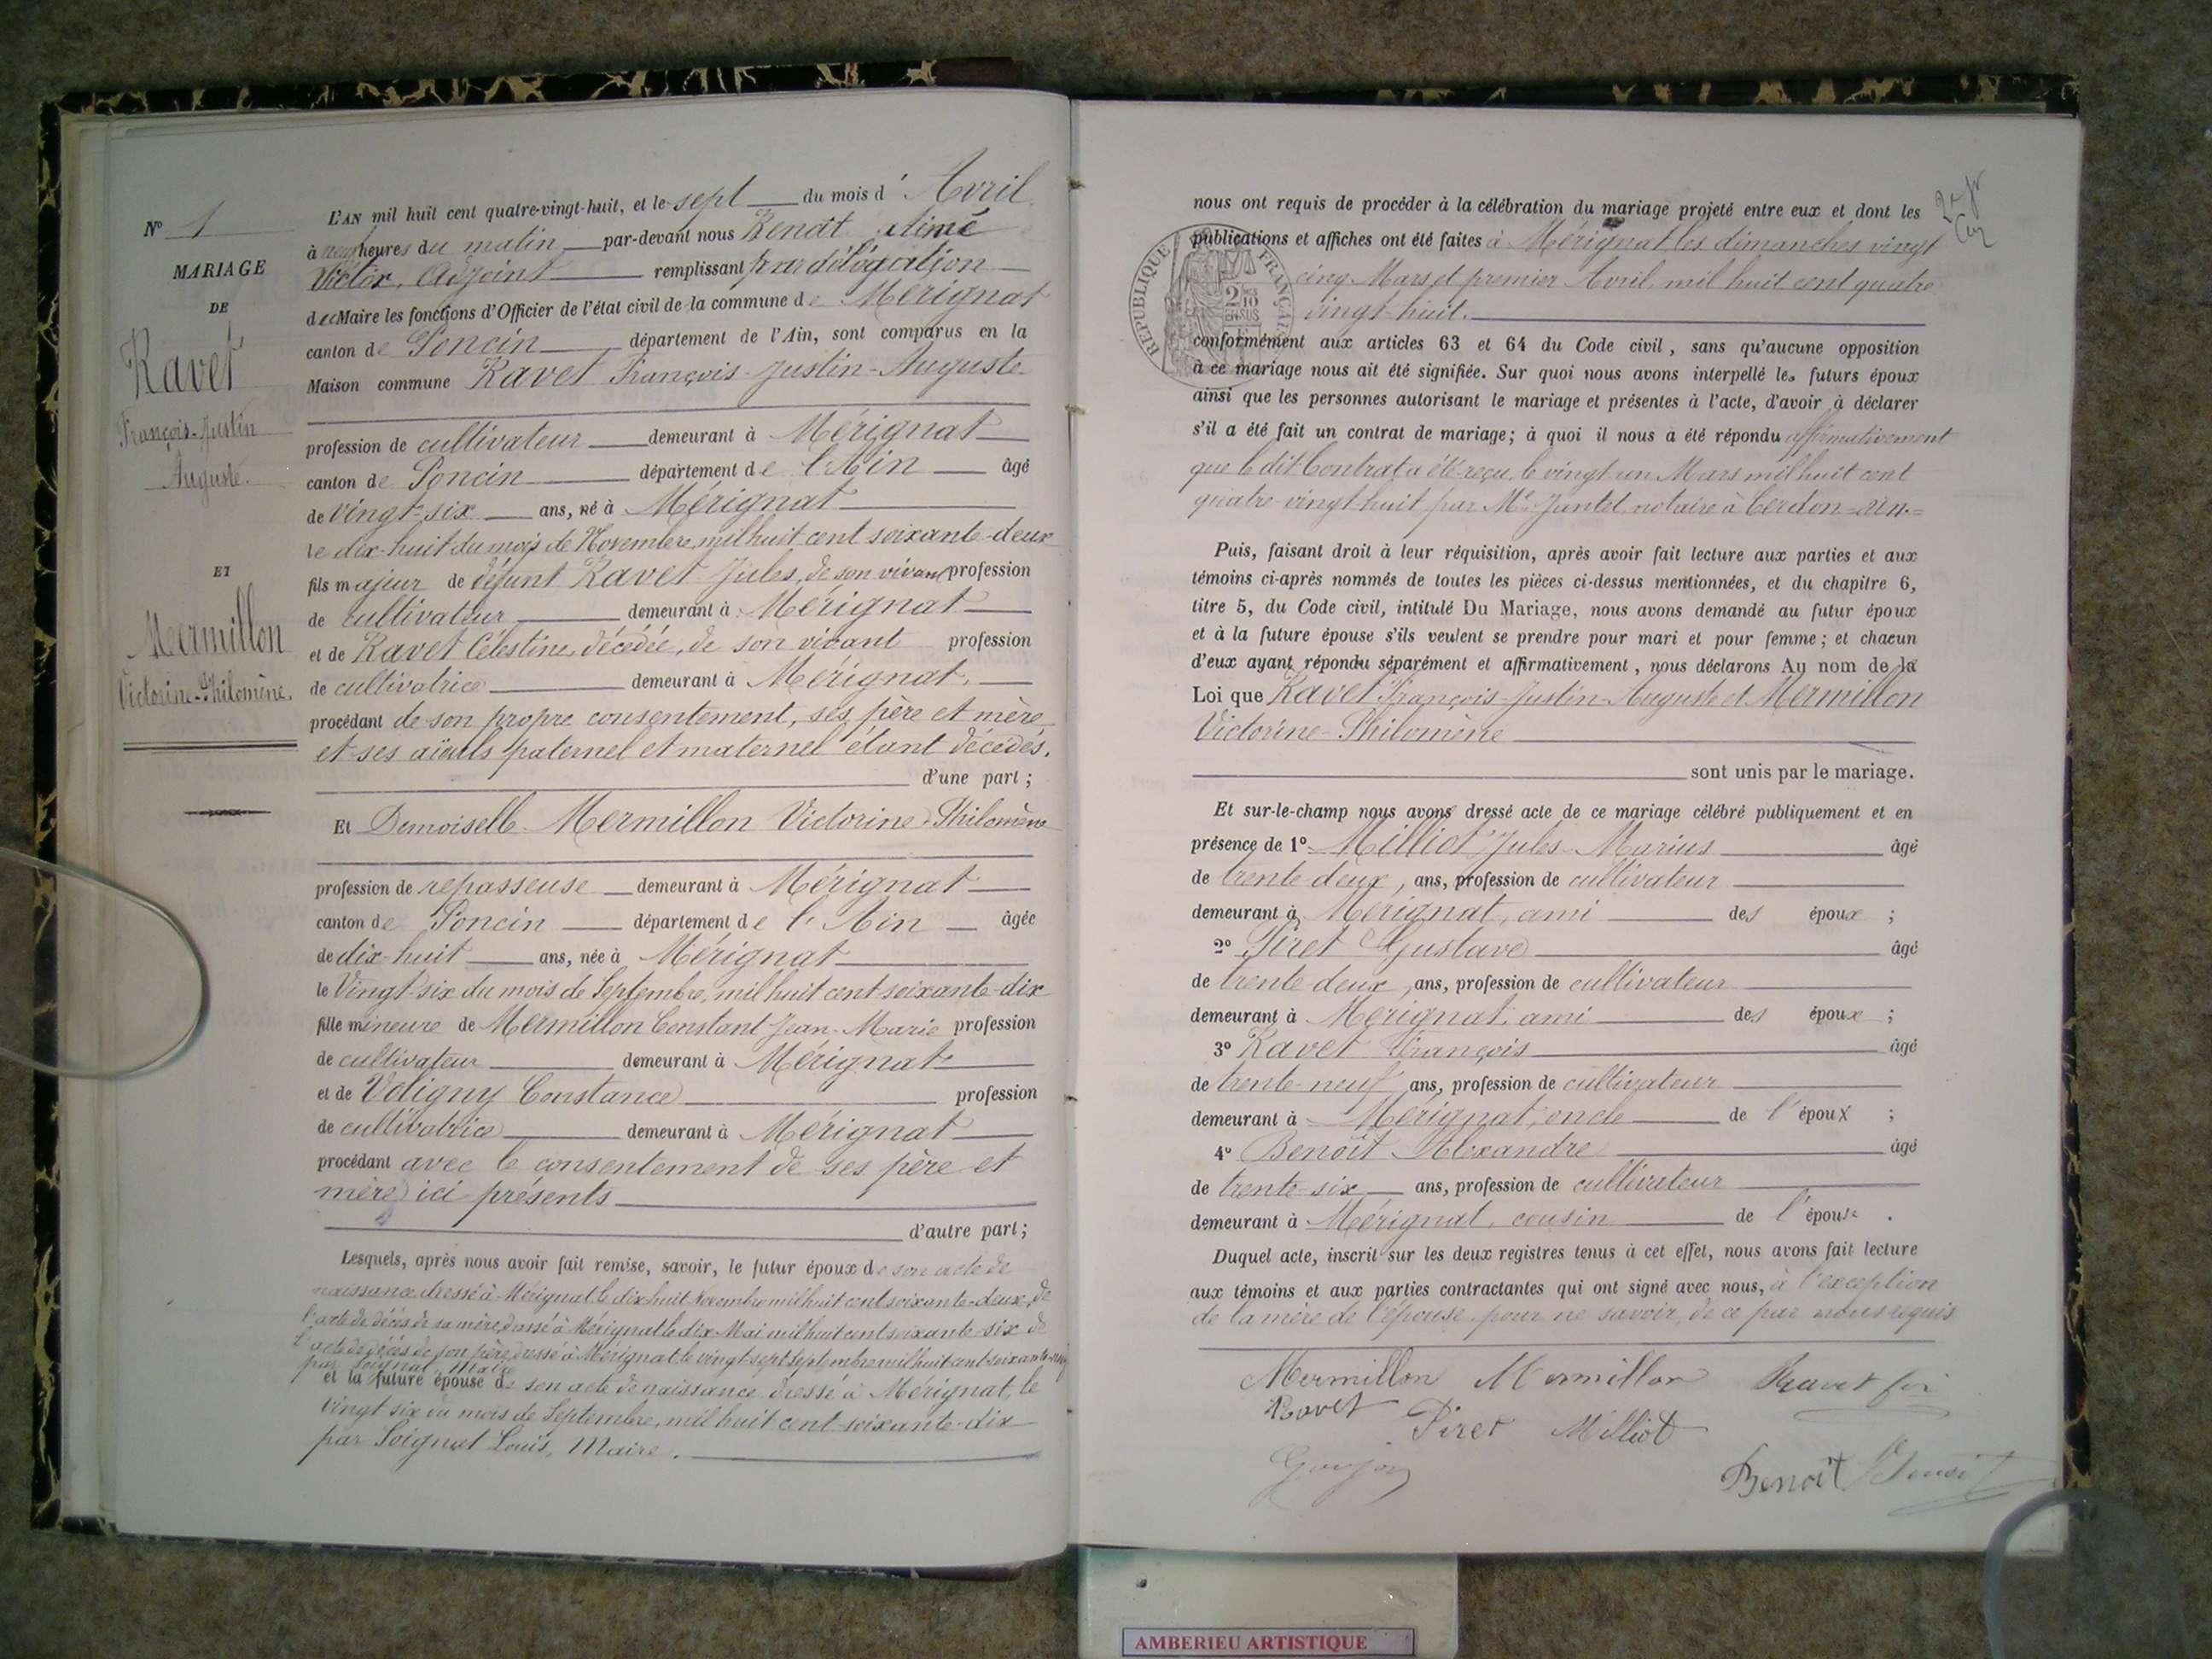 N° 1
MARIAGE
DE
Ravet
François-Justin
Auguste.
ET
Mermillon
Victorine-Philomène.
L'AN mil huit cent quatre-vingt-huit, et le sept du mois d' Avril
à neuf heures du matin par-devant nous Benoît Aimé
Victor, Adjoint remplissant par délégation
de Maire les fonctions d'Officier de l'état civil de la commune de Mérignat
canton de Poncin département de l'Ain, sont comparus en la
Maison commune Ravet François-Justin-Auguste
profession de cultivateur demeurant à Mérignat
canton de Poncin département de l'Ain âgé
de vingt-six ans, né à Mérignat
le dix-huit du mois de Novembre, mil huit cent soixante-deux
fils majeur de défunt Ravet Jules, de son vivant profession
de cultivateur demeurant à Mérignat
et de Ravet Célestine, décédée, de son vivant profession
de cultivatrice demeurant à Mérignat,
procédant de son propre consentement, ses père et mère
et ses aïeuls paternel et maternel étant décédés,
d'une part ;
Et Demoiselle Mermillon Victorine-Philomène
profession de repasseuse demeurant à Mérignat
canton de Poncin département de l'Ain âgée
de dix-huit ans, née à Mérignat
le Vingt-six du mois de Septembre, mil huit cent soixante-dix
fille mineure de Mermillon Constant Jean-Marie profession
de cultivateur demeurant à Mérignat
et de Voligny Constance profession
de cultivatrice demeurant à Mérignat
procédant avec le consentement de ses père et
mère ici présents
d'autre part ;
Lesquels, après nous avoir fait remise, savoir, le futur époux de son acte de
naissance dressé à Mérignat le dix-huit Novembre mil huit cent soixante-deux, de
l'acte de décès de sa mère, dressé à Mérignat le dix Mai mil huit cent soixante-six de
l'acte de décès de son père, dressé à Mérignat le vingt-sept Septembre mil huit cent soixante-
par Soignat, Maire
et la future épouse de son acte de naissance dressé à Mérignat, le
vingt six du mois de Septembre, mil huit cent soixante-dix
par Soignat Louis, Maire.
nous ont requis de procéder à la célébration du mariage projeté entre eux et dont les
publications et affiches ont été faites à Mérignat les dimanches vingt
cinq Mars et premier Avril, mil huit cent quatre
vingt-huit.
RÉPUBLIQUE FRANÇAISE
conformément aux articles 63 et 64 du Code civil, sans qu'aucune opposition
à ce mariage nous ait été signifiée. Sur quoi nous avons interpellé les futurs époux
ainsi que les personnes autorisant le mariage et présentes à l'acte, d'avoir à déclarer
s'il a été fait un contrat de mariage; à quoi il nous a été répondu affirmativement
que le dit Contrat a été reçu, le vingt un Mars mil huit cent
quatre-vingt-huit par Me Jantet notaire à Cerdon-Ain.
Puis, faisant droit à leur réquisition, après avoir fait lecture aux parties et aux
témoins ci-après nommés de toutes les pièces ci-dessus mentionnées, et du chapitre 6,
titre 5, du Code civil, intitulé Du Mariage, nous avons demandé au futur époux
et à la future épouse s'ils veulent se prendre pour mari et pour femme; et chacun
d'eux ayant répondu séparément et affirmativement, nous déclarons Au nom de la
Loi que Ravet François-Justin-Auguste et Mermillon
Victorine-Philomène
sont unis par le mariage.
Et sur-le-champ nous avons dressé acte de ce mariage célébré publiquement et en
présence de 1° Milliot Jules-Marius âgé
de trente-deux, ans, profession de cultivateur
demeurant à Mérignat, ami des époux ;
2° Piret Gustave âgé
de trente deux, ans, profession de cultivateur
demeurant à Mérignat, ami des époux ;
3° Ravet François âgé
de trente-neuf ans, profession de cultivateur
demeurant à Mérignat, oncle de l'époux ;
4° Benoît Alexandre âgé
de trente-six ans, profession de cultivateur
demeurant à Mérignat, cousin de l'épouse .
Duquel acte, inscrit sur les deux registres tenus à cet effet, nous avons fait lecture
aux témoins et aux parties contractantes qui ont signé avec nous, à l'exception
de la mère de l'épouse, pour ne savoir, de ce par nous requis
Mermillon Mermillon Ravet
Ravet Piret Milliot
Goujon
Benoît Benoit
AMBERIEU ARTISTIQUE